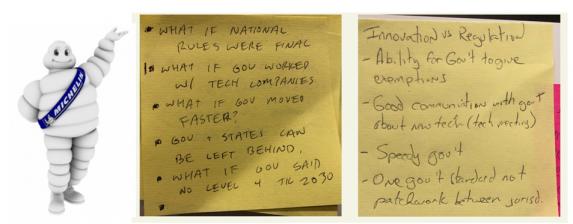 MICHELIN
• WHAT IF NATIONAL
RULES WERE FINAL
• WHAT IF GOV WORKED
W/ TECH COMPANIES
• WHAT IF GOV MOVED
FASTER?
• GOV + STATES CAN
BE LEFT BEHIND.
• WHAT IF GOV SAID
NO LEVEL 4 TIL 2030
Innovation vs Regulation
- Ability for Gov't to give
exemptions
- Good communication with gov't
about new tech (tech meeting)
- Speedy gov't
- One gov't standard not
patchwork between jurisd.